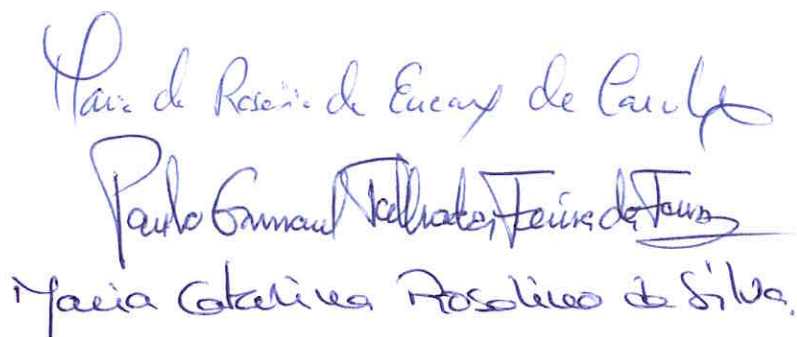 Maria do Rosário da Encarn de Carvalho
Paulo Emanuel Talhadas Ferreira da Fonseca
Maria Catarina Rosalino da Silva.